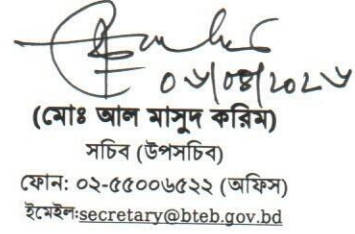 ০৬/০৪/২০২৬
(মোঃ আল মাসুদ করিম)
সচিব (উপসচিব)
ফোন: ০২-৫৫০০৬৫২২ (অফিস)
ইমেইল:secretary@bteb.gov.bd